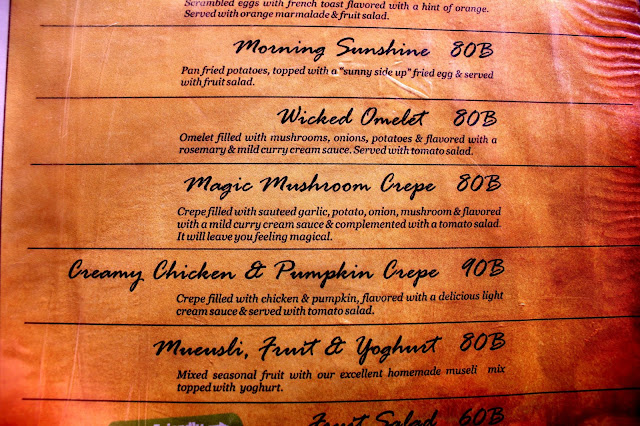 Scrambled eggs with french toast flavored with a hint of orange.
Served with orange marmalade & fruit salad.
Morning Sunshine 80B
Pan fried potatoes, topped with a "sunny side up" fried egg & served
with fruit salad.
Wicked Omelet 80B
Omelet filled with mushrooms, onions, potatoes & flavored with a
rosemary & mild curry cream sauce. Served with tomato salad.
Magic Mushroom Crepe 80B
Crepe filled with sauteed garlic, potato, onion, mushroom & flavored
with a mild curry cream sauce & complemented with a tomato salad.
It will leave you feeling magical.
Creamy Chicken & Pumpkin Crepe 90B
Crepe filled with chicken & pumpkin, flavored with a delicious light
cream sauce & served with tomato salad.
Mueusli, Fruit & Yoghurt 80B
Mixed seasonal fruit with our excellent homemade museli mix
topped with yoghurt.
Fruit Salad 60B